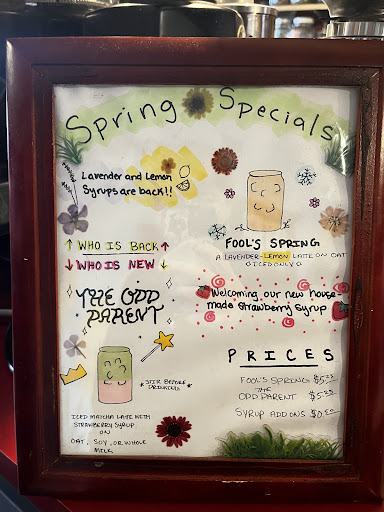 Spring Specials
Lavender and Lemon
Syrups are back!!
↑ WHO IS BACK ↑
↓ WHO IS NEW ↓
THE ODD
PARENT
* STIR BEFORE
DRINKING *
ICED MATCHA LATE WITH
STRAWBERRY SYRUP
ON
OAT, SOY, OR WHOLE
MILK
FOOL'S SPRING
A LAVENDER-LEMON LATE ON OAT
ICED ONLY
Welcoming our new house
made Strawberry Syrup
PRICES
FOOL'S SPRING
THE
ODD PARENT
SYRUP ADD ONS